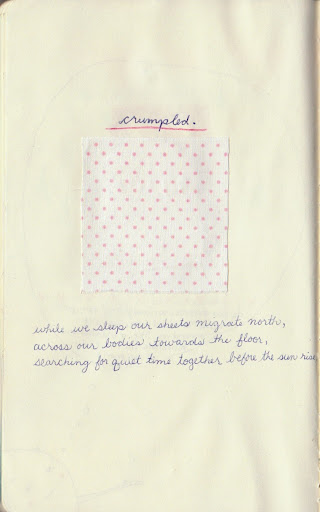 crumpled.
while we sleep our sheets migrate north,
across our bodies towards the floor,
searching for quiet time together before the sun rise